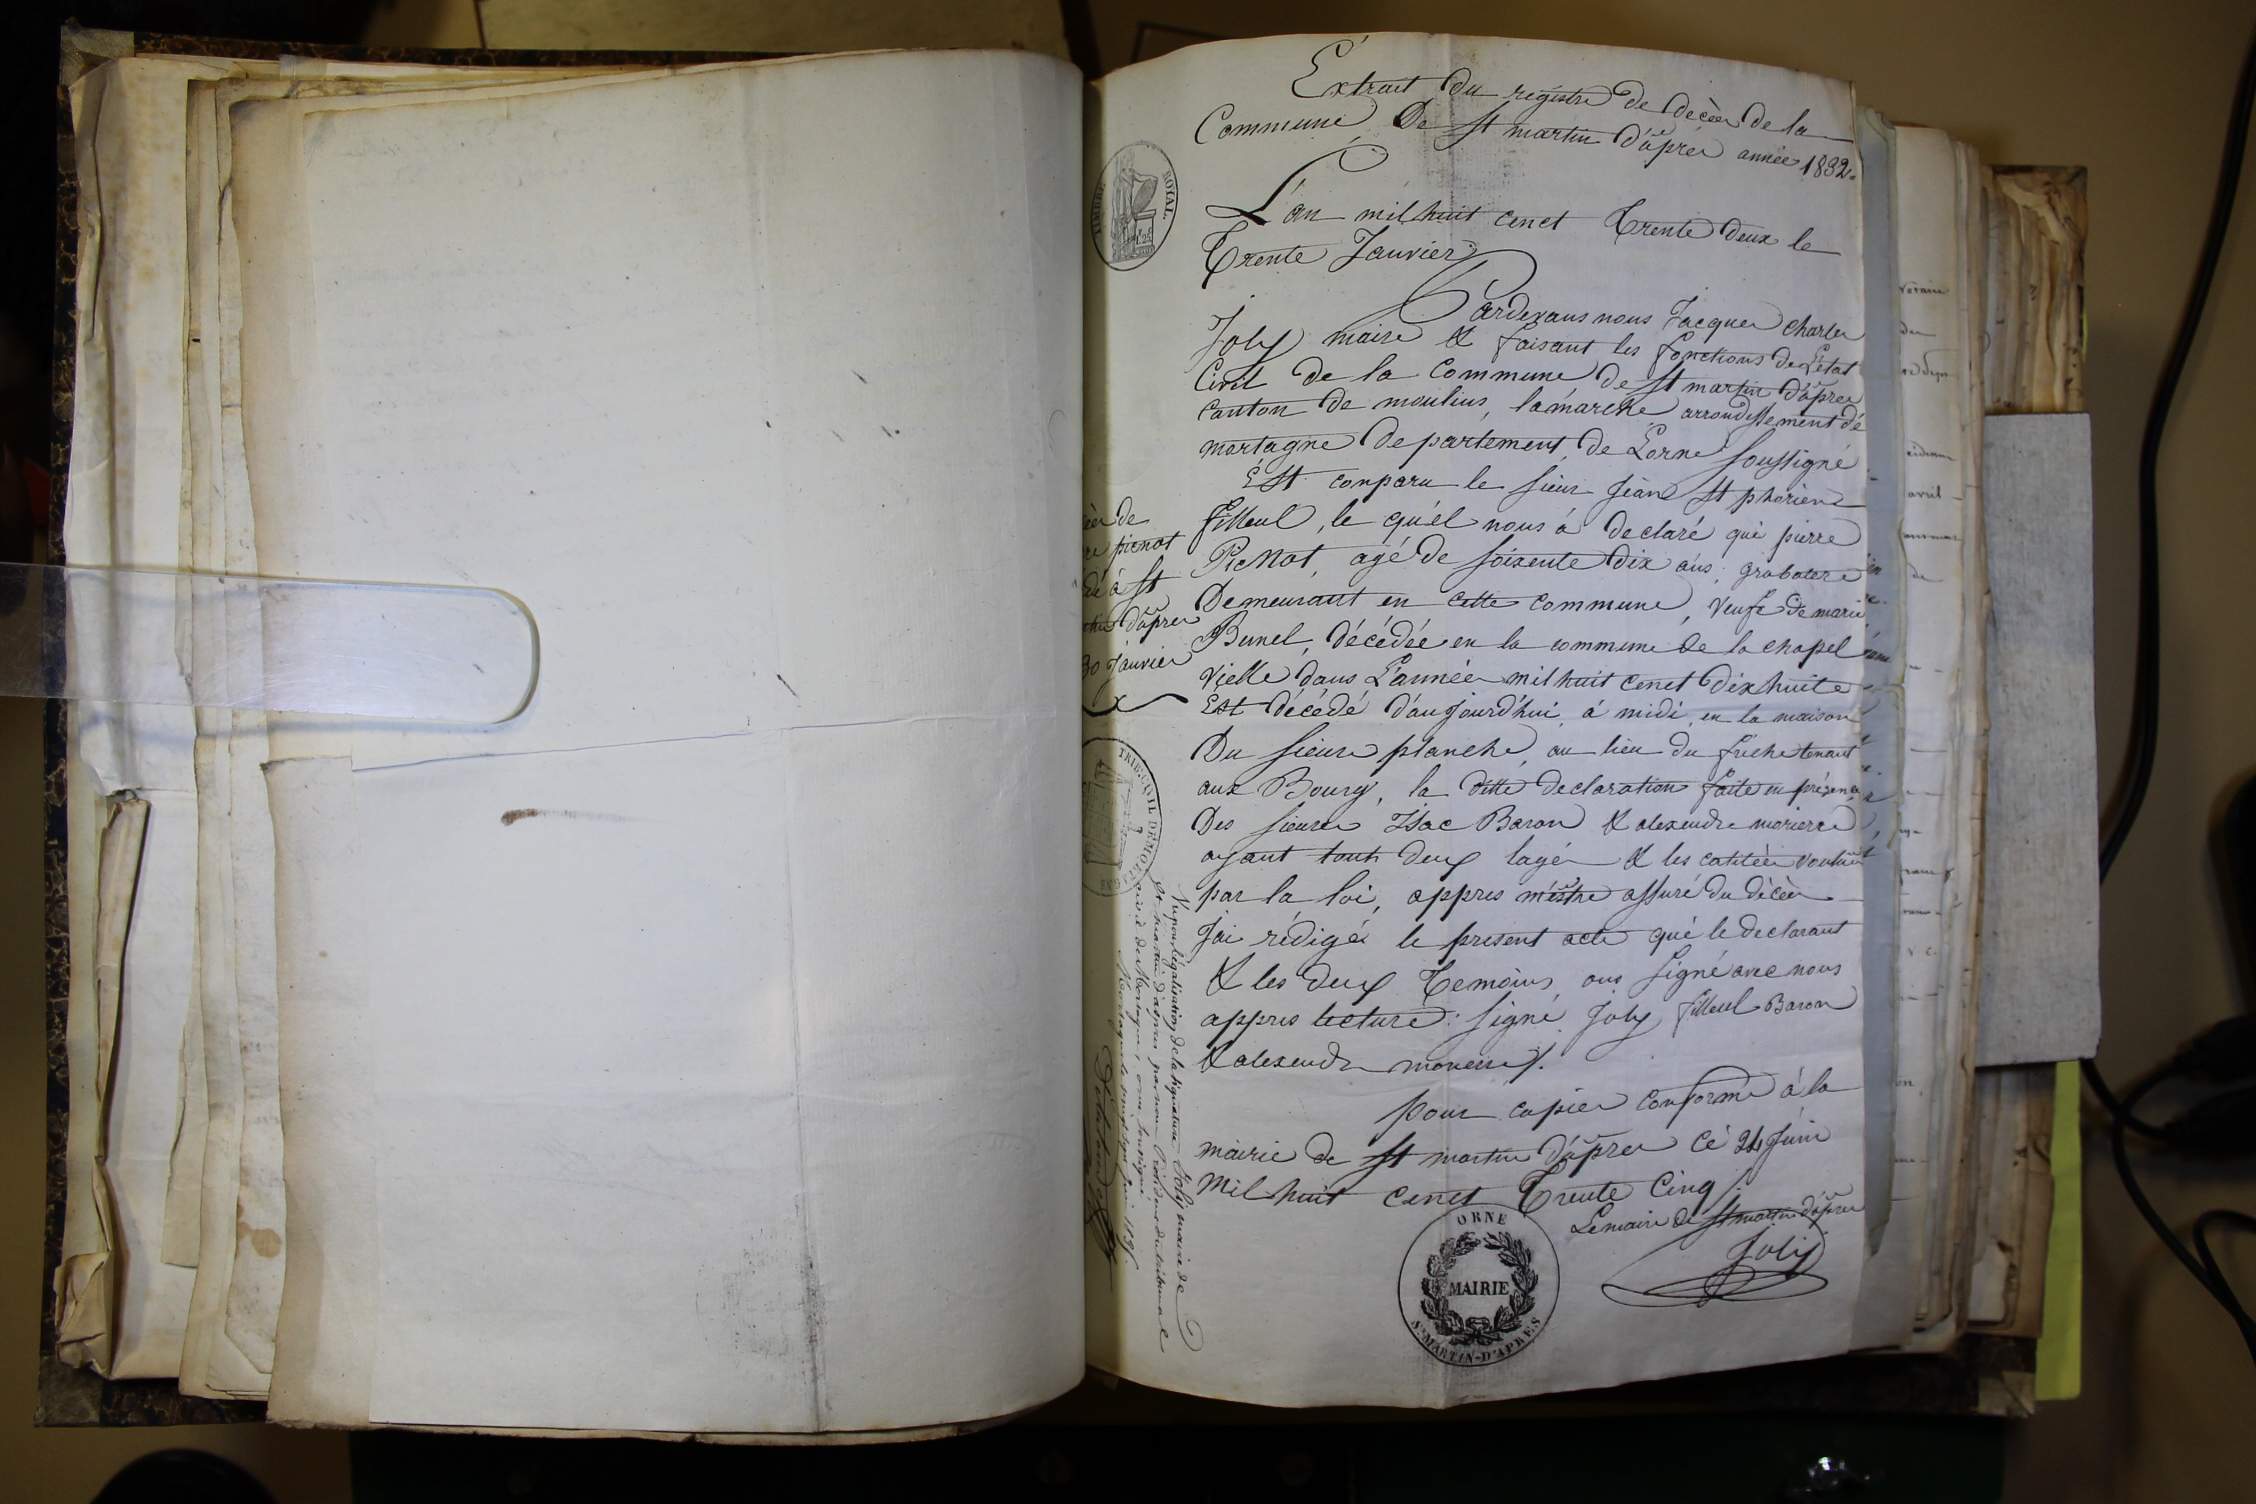 Extrait du registre de décès de la
Commune De St martin d'âpres année 1832.
TIMBRE ROYAL.
L'an mil huit cenct Trente deux le
Trente Janvier
Pardevans nous Jacques Charles
Joly maire & faisant les fonctions de L'Etat
Civil de la Commune de St martin d'âpres
Canton de moulins, lamarche arrondissement dé
mortagne departement de Lorne soussigné
Est conparu le sieur Jéan St phorien
filleul, le qu'él nous á declaré que pierre
Picnot, agé de soixente dix ans,
Demeurant en cette commune, veufe de marie
Bunel, décédée en la commune de la chapel
vielle dans L'année mil huit cenct dix huite
Est décédé d'aujourd'hui á midi, en la maison
Du sieure planche, au lieu du friche tenant
aux Bourg, la ditte declaration faite en présence
Des sieures Isac Baron & alexendre
ayant touts deux lagés & les calitées voulues
par la loi, appres m'estre assuré du décès
Jai rédigé le present acte qué le declarant
& les deux Temoins, ons signé avec nous
appres lecture: signé Joly filleul Baron
& alexendre
pour copier conforme á la
mairie de St martin d'âpres cé 24 Juin
Mil huit cenct Trente Cinq
Le maire de St martin d'âpres
Joly
ORNE
MAIRIE
ST MARTIN-D'APRES
de
picnot
à St
d'âpres
30 Janvier
TRIB. CIVIL DE MORTAGNE
Vu pour légalisation de la signature Joly maire de
St Martin d'aspres par nous Président du tribunal
civil de Mortagne, soussigné
Mortagne le juin 1835.